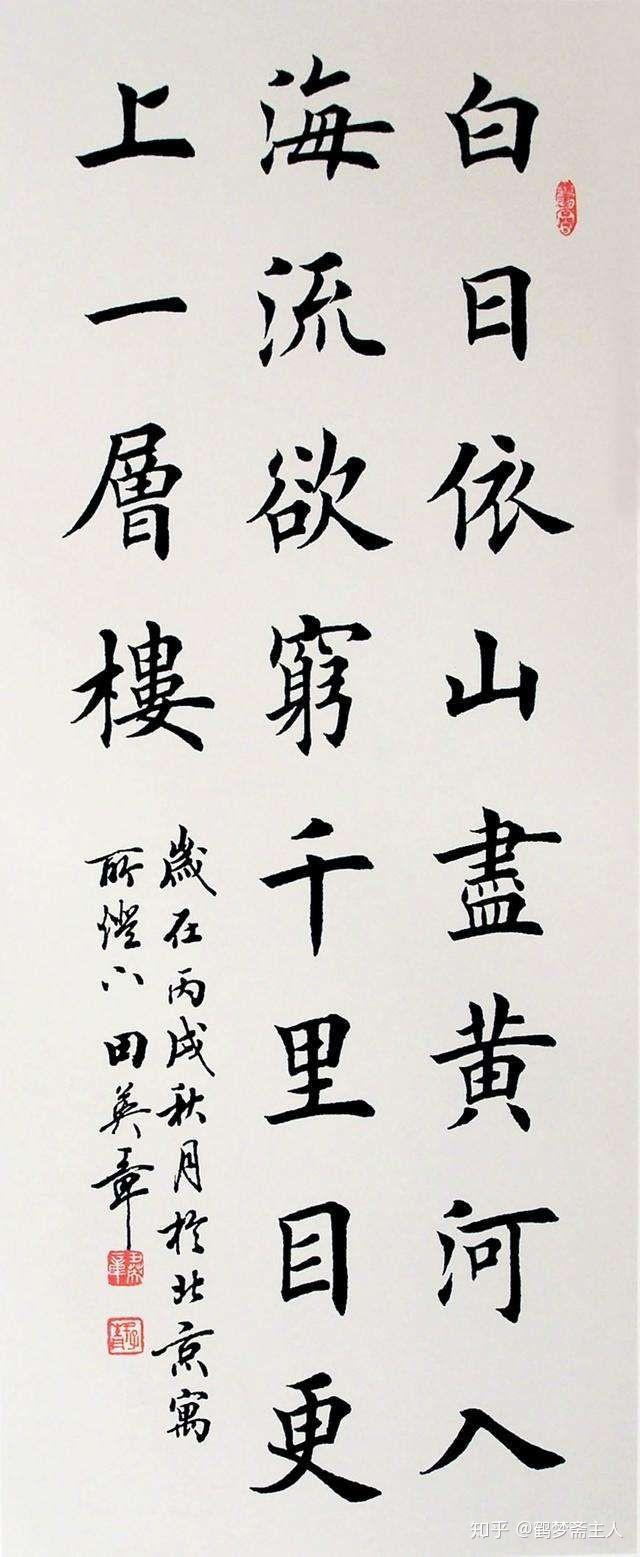 白日依山盡黄河入
海流欲窮千里目更
上一層樓
歲在丙戌秋月於北京寓
所燈下田英章
知乎 @鹤梦斋主人